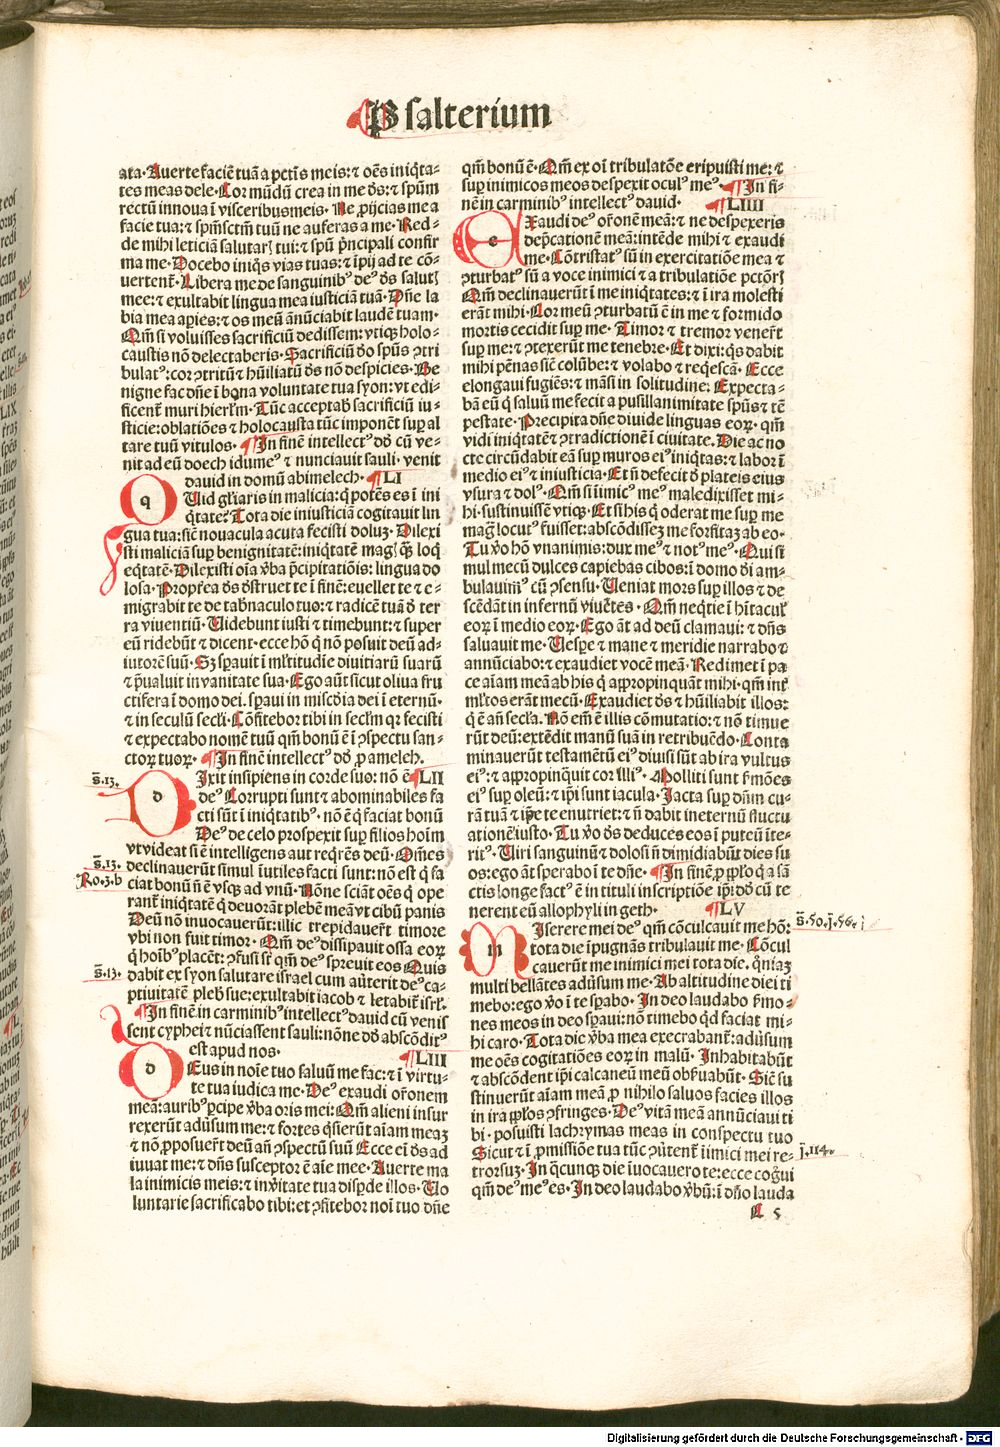 Psalterium
ata. Auerte faciē tuā a pctīs meis: ⁊ oēs iniq̄ta-
tes meas dele. Cor mūdū crea in me dš: ⁊ spūm
rectū innoua ī visceribus meis. Ne proijcias me a
facie tua: ⁊ spm̄ sctm̄ tuū ne auferas a me. Red-
de mihi leticiā salutarꝭ tui: ⁊ spū prīncipali confir
ma me. Docebo iniq̄s vias tuas: ⁊ īpij ad te cō-
uertent. Libera me de sanguinibꝰ deꝰ dš salutꝭ
mee: ⁊ exultabit lingua mea iusticiā tuā. Dn̄e la
bia mea aꝑies: ⁊ os meū ānūciabit laudē tuam.
Qm̄ si voluisses sacrificiū dedissem: vtiqꝫ holo-
caustis nō delectaberis. Sacrificiū do spūs ꝯtri
bulatꝰ: cor ꝯtritū ⁊ hūiliatū dš nō despicies. Be
nigne fac dn̄e ī bona voluntate tua syon: vt edi-
ficent muri hierlm̄. Tūc acceptabis sacrificiū iu-
sticie: oblatiōes ⁊ holocausta tūc imponēt sup al
tare tuū vitulos. ¶ In finē intellectꝰ dd cū ve-
nit ad eū doech idumeꝰ ⁊ nunciauit sauli. venit
dauid in domū abimelech. ¶ LI
q Uid gl̄iaris in malicia: q̄ potēs es ī ini
q̄tate? Tota die iniusticiā cogitauit lin
gua tua: sic̄ nouacula acuta fecisti dolū. Dilexi
sti maliciā sup benignitatē: iniq̄tatē magꝭ q̄ꝫ loq̄
eq̄tatē. Dilexisti oīa vba p̄cipitatiōis: lingua do
losa. Propterea dš dstruet te ī finē: euellet te ⁊ e-
migrabit te de tabnaculo tuo: ⁊ radicē tuā d ter
ra viuentiū. Uidebunt iusti ⁊ timebunt: ⁊ super
eū ridebūt ⁊ dicent. ecce hō q̄ nō posuit deū ad-
iutorē suū. Sꝫ sꝑauit ī ml̄titudīe diuitiarū suarū
⁊ p̄ualuit in vanitate sua. Ego aūt sicut oliua fru
ctifera ī domo dei. sꝑaui in mīscd̄ia dei ī eternū.
⁊ in seculū secli. Cōfitebor tibi in seclm̄ qꝛ fecisti
⁊ expectabo nomē tuū qm̄ bonū ē ī ꝯspectu san-
ctoꝝ tuoꝝ. ¶ In finē intellectꝰ dd pro ameleh.
d Ixit insipiens in corde suo: nō ē ¶ LII
deꝰ Corrupti sunt ⁊ abominabiles fa
cti sūt ī iniq̄tatibꝰ. nō ē q̄ faciat bonū
Deꝰ de celo prospexit sup filios hoīm
vt videat si ē intelligens aut req̄rēs deū. Om̄es
declinauerūt simul īutiles facti sunt: nō est q̄ fa
ciat bonū nō ē vsqꝫ ad vnū. Nōne sciāt oēs q̄ ope
rant iniq̄tatē q̄ deuorāt plebē meā vt cibū panis
Deū nō inuocauerūt: illic trepidauert timore
vbi non fuit timor. Qm̄ deꝰ dissipauit ossa eoꝝ
q̄ hoībꝰ placēt: ꝯfusi st̄ qm̄ deꝰ spreuit eos Quis
dabit ex syon salutare israel cum auterit deꝰ ca-
ptiuitatē plebis sue: exultabit iacob ⁊ letabit isrl̄.
¶ In finē in carminibꝰ intellectꝰ dauid cū venis
sent cyphei ⁊ nūciassent sauli: nōne dd abscōditꝰ
est apud nos. ¶ LIII
d Eus in noīe tuo saluū me fac: ⁊ ī virtu-
te tua iudica me. Deꝰ exaudi oronem
meā: auribꝰ ꝑcipe vba oris mei: Qm̄ alieni insur
rexerūt aduersum me: ⁊ fortes q̄sierūt aīam meaꝫ
⁊ nō proposuert deū an̄ ꝯspectū suū Ecce ei dš ad
iuuat me: ⁊ dn̄s susceptor ē aīe mee. Auerte ma
la inimicis meis: ⁊ in veritate tua disꝑde illos. Uo
luntarie sacrificabo tibi: ⁊ ꝯfitebor noī tuo dn̄e
qm̄ bonū ē. Qm̄ ex oī tribulatōe eripuisti me: ⁊
sup inimicos meos despexit oculꝰ meꝰ. ¶ In fi-
nē in carminibꝰ intellectꝰ dauid. ¶ LIIII
e Xaudi deꝰ orōnē meā: ⁊ ne despexeris
dep̄cationē meā: intēde mihi ⁊ exaudi
me. Cōtristatꝰ sū in exercitatiōe mea ⁊
ꝯturbatꝰ sū a voce inimici ⁊ a tribulatiōe pctōrꝭ
Qm̄ declinauerūt ī me iniq̄tates: ⁊ ī ira molesti
erāt mihi. Cor meū ꝯturbatū ē in me ⁊ formido
mortis cecidit sup me. Timor ⁊ tremor venert
sup me: ⁊ ꝯtexerūt me tenebre. Et dixi: q̄s dabit
mihi pēnas sic̄ colūbe: ⁊ volabo ⁊ reqescā. Ecce
elongaui fugiēs: ⁊ māsi in solitudine: Expecta-
bā eū q̄ saluū me fecit a pusillanimitate spūs ⁊ tē
pestate. Precipita dn̄e diuide linguas eoꝝ. qm̄
vidi iniq̄tatē ⁊ ꝯtradictionē ī ciuitate. Die ac no
cte circūdabit eā sup muros eiꝰ iniq̄tas: ⁊ labor ī
medio eiꝰ ⁊ iniusticia. Et nō defecit d plateis eius
vsura ⁊ dolꝰ. Qm̄ si īimicꝰ meꝰ maledixisset mi-
hi. sustinuissē vtiqꝫ. Et si his q̄ oderat me sup me
magꝭ locutꝰ fuisset: abscōdissēꝫ me forsitaꝫ ab eo.
Tu vo hō vnanimis: dux meꝰ ⁊ notꝰ meꝰ. Qui si
mul mecū dulces capiebas cibos: ī domo dī am-
bulauimꝰ cū ꝯsensu. Ueniat mors sup illos ⁊ de
scēdāt in infernū viuētes. Qm̄ neq̄tie ī hītaculꝭ
eoꝝ ī medio eoꝝ. Ego āt ad deū clamaui: ⁊ dn̄s
saluauit me. Uesꝑe ⁊ mane ⁊ meridie narrabo ⁊
annūciabo: ⁊ exaudiet vocē meā. Redimet ī pa
ce aīam meā ab his q̄ appropinquāt mihi. qm̄ int̄
ml̄tos erāt mecū. Exaudiet dš ⁊ hūiliabit illos:
q̄ ē an̄ secla. Nō em̄ ē illis cōmutatio: ⁊ nō timue
rūt deū: extēdit manū suā in retribuēdo. Conta
minauerūt testamētū eiꝰ diuisi sūt ab ira vultus
eiꝰ: ⁊ appropinq̄uit cor illiꝰ. Molliti sunt sermōes
eiꝰ sup oleū: ⁊ ip̄i sunt iacula. Jacta sup dn̄m cu-
rā tuā ⁊ ip̄e te enutriet: ⁊ nō dabit ineternū fluctu
ationē iusto. Tu vo dš deduces eos ī puteū īte-
ritꝰ. Uiri sanguinū ⁊ dolosi nō dimidiabūt dies su
os: ego āt sperabo ī te dn̄e. ¶ In finē pro pplo q̄ a sā
ctis longe factꝰ ē in tituli inscriptiōe ip̄i dd cū te
nerent eū allophyli in geth. ¶ LV
m Iserere mei deꝰ qm̄ cōculcauit me hō:
tota die ipugnās tribulauit me. Cōcul
cauerūt me inimici mei tota die. qm̄iaꝫ
multi bellātes aduersum me. Ab altitudine diei ti
mebo: ego vo ī te sꝑabo. In deo laudabo sermo-
nes meos in deo sꝑaui: nō timebo qd faciat mi-
hi caro. Tota die vba mea execrabant: aduersum
me oēs cogitatiōes eoꝝ in malū. Inhabitabūt
⁊ abscōdent ip̄i calcaneū meū obseruabūt. Sic̄ su
stinuerūt aīam meā pro nihilo saluos facies illos
in ira pplos ꝯfringes. Deꝰ vitā meā annūciaui ti
bi. posuisti lachrymas meas in conspectu tuo
Sicut ⁊ ī promissiōe tua tūc ꝯuertent īimici mei re-
trorsuꝫ. In q̄cunqꝫ die īuocauero te: ecce cogui
qm̄ deꝰ meꝰ es. In deo laudabo vbū: ī dn̄o lauda
L 5
s. 13.
s. 13.
Ro. 3. b
s. 13.
s. 50. j. 56.
j. 114.
Digitalisierung gefördert durch die Deutsche Forschungsgemeinschaft - DFG